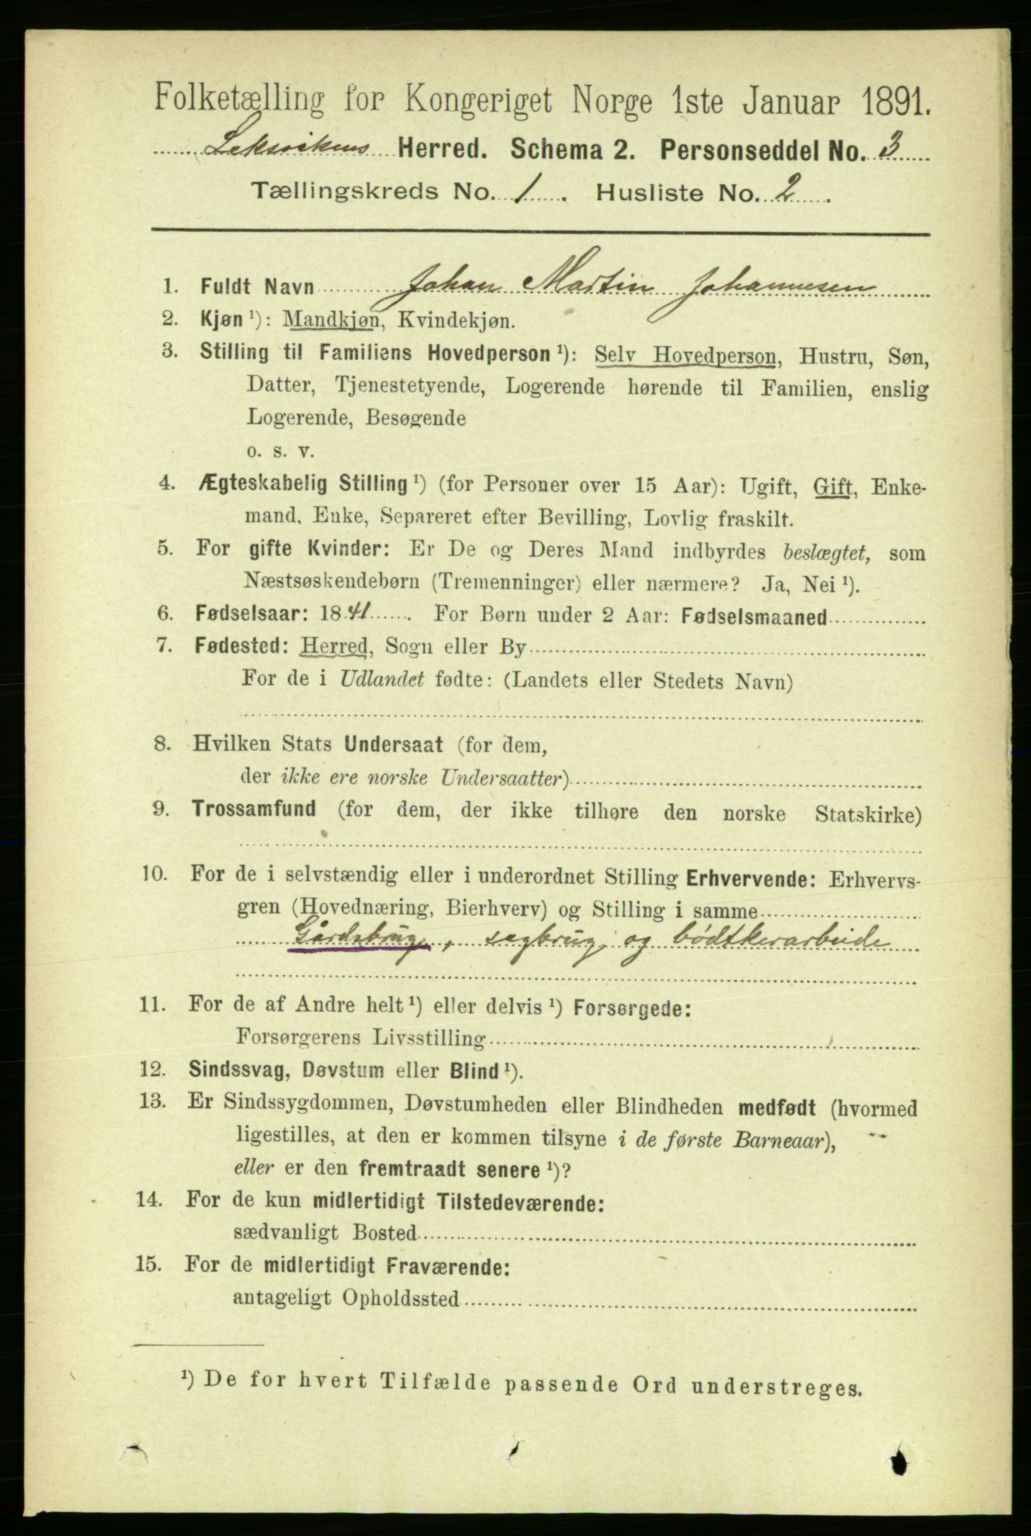 Folketælling for Kongeriget Norge 1ste Januar 1891.
Leksvikens Herred. Schema 2. Personseddel No. 3
Tællingskreds No. 1. Husliste No. 2.
1. Fuldt Navn Johan Martin Johannesen
2. Kjøn ¹): Mandkjøn, Kvindekjøn.
3. Stilling til Familiens Hovedperson ¹): Selv Hovedperson, Hustru, Søn,
Datter, Tjenestetyende, Logerende hørende til Familien, enslig
Logerende, Besøgende
o. s. v.
4. Ægteskabelig Stilling ¹) (for Personer over 15 Aar): Ugift, Gift, Enke-
mand, Enke, Separeret efter Bevilling, Lovlig fraskilt.
5. For gifte Kvinder: Er De og Deres Mand indbyrdes beslægtet, som
Næstsøskendebørn (Tremenninger) eller nærmere? Ja, Nei ¹).
6. Fødselsaar: 1841. For Børn under 2 Aar: Fødselsmaaned
7. Fødested: Herred, Sogn eller By
For de i Udlandet fødte: (Landets eller Stedets Navn)
8. Hvilken Stats Undersaat (for dem,
der ikke ere norske Undersaatter)
9. Trossamfund (for dem, der ikke tilhøre den norske Statskirke)
10. For de i selvstændig eller i underordnet Stilling Erhvervende: Erhvervs-
gren (Hovednæring, Bierhverv) og Stilling i samme
Gårdsbrug, sagbrug, og bødtkerarbeide
11. For de af Andre helt ¹) eller delvis ¹) Forsørgede:
Forsørgerens Livsstilling
12. Sindssvag, Døvstum eller Blind ¹).
13. Er Sindssygdommen, Døvstumheden eller Blindheden medfødt (hvormed
ligestilles, at den er kommen tilsyne i de første Barneaar),
eller er den fremtraadt senere ¹)?
14. For de kun midlertidigt Tilstedeværende:
sædvanligt Bosted
15. For de midlertidigt Fraværende:
antageligt Opholdssted
¹) De for hvert Tilfælde passende Ord understreges.